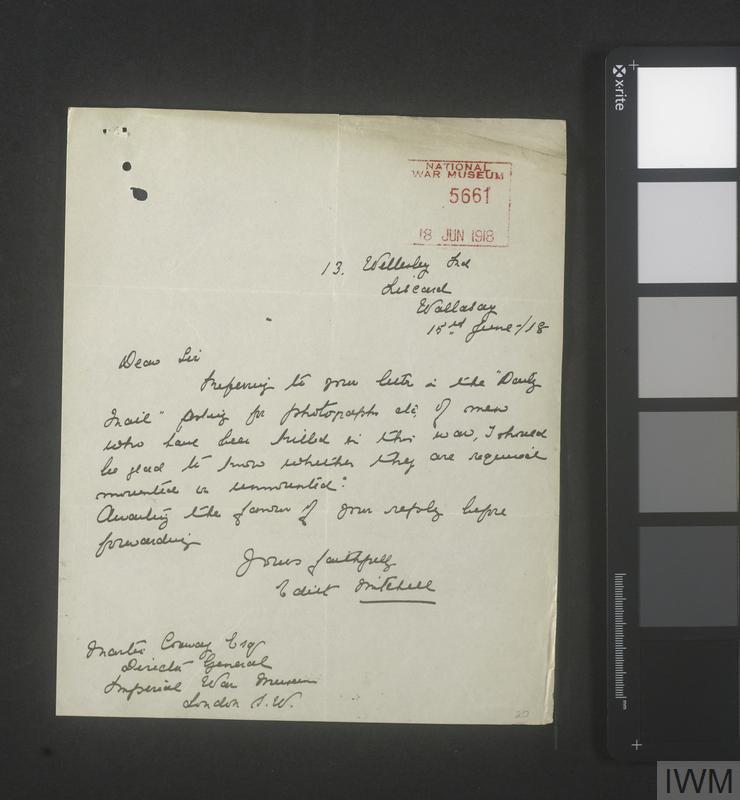 NATIONAL
WAR MUSEUM
5661
18 JUN 1918
13. Wellesley Rd
Liscard
Wallasey
15th June/18
Dear Sir
Referring to your letter in the "Daily
Mail" asking for photographs etc, of men
who have been killed in this war, I should
be glad to know whether they are required
mounted or unmounted.
Awaiting the favour of your reply before
forwarding
Yours faithfully
Edith Mitchell
Martin Conway Esq
Director General
Imperial War Museum
London S.W.
20
x-rite
mm
IWM